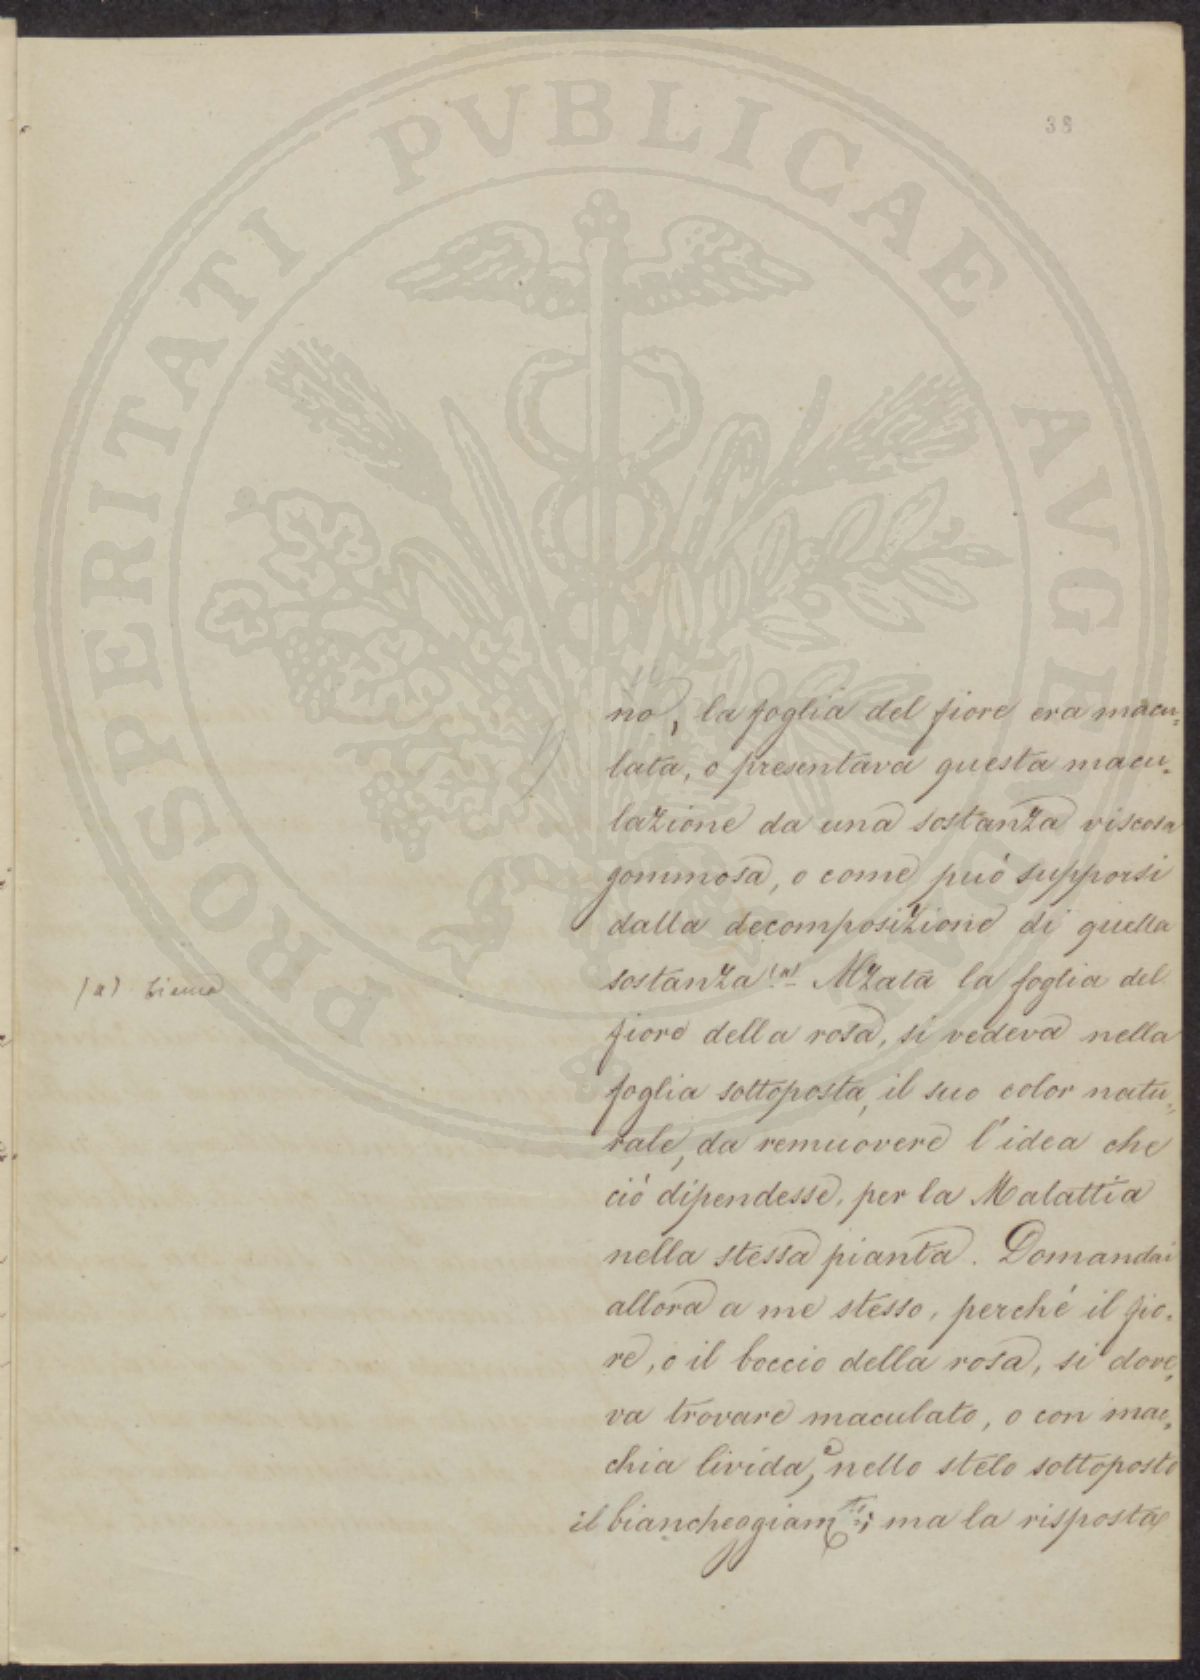 PROSPERITATI PVBLICAE AVGENDAE
38
no, la foglia del fiore era macu=
lata, o presentava questa macu=
lazione da una sostanza viscosa
gommosa, o come può supporsi
dalla decomposizione di quella
sostanza (a) Alzata la foglia del
fiore della rosa, si vedeva nella
foglia sottoposta, il suo color natu=
rale, da remuovere l'idea che
ciò dipendesse, per la Malattia
nella stessa pianta. Domandai
allora a me stesso, perché il fio=
re, o il boccio della rosa, si dove=
va trovare maculato, o con mac=
chia livida, e nello stelo sottoposto
il biancheggiam.to; ma la risposta
(a)